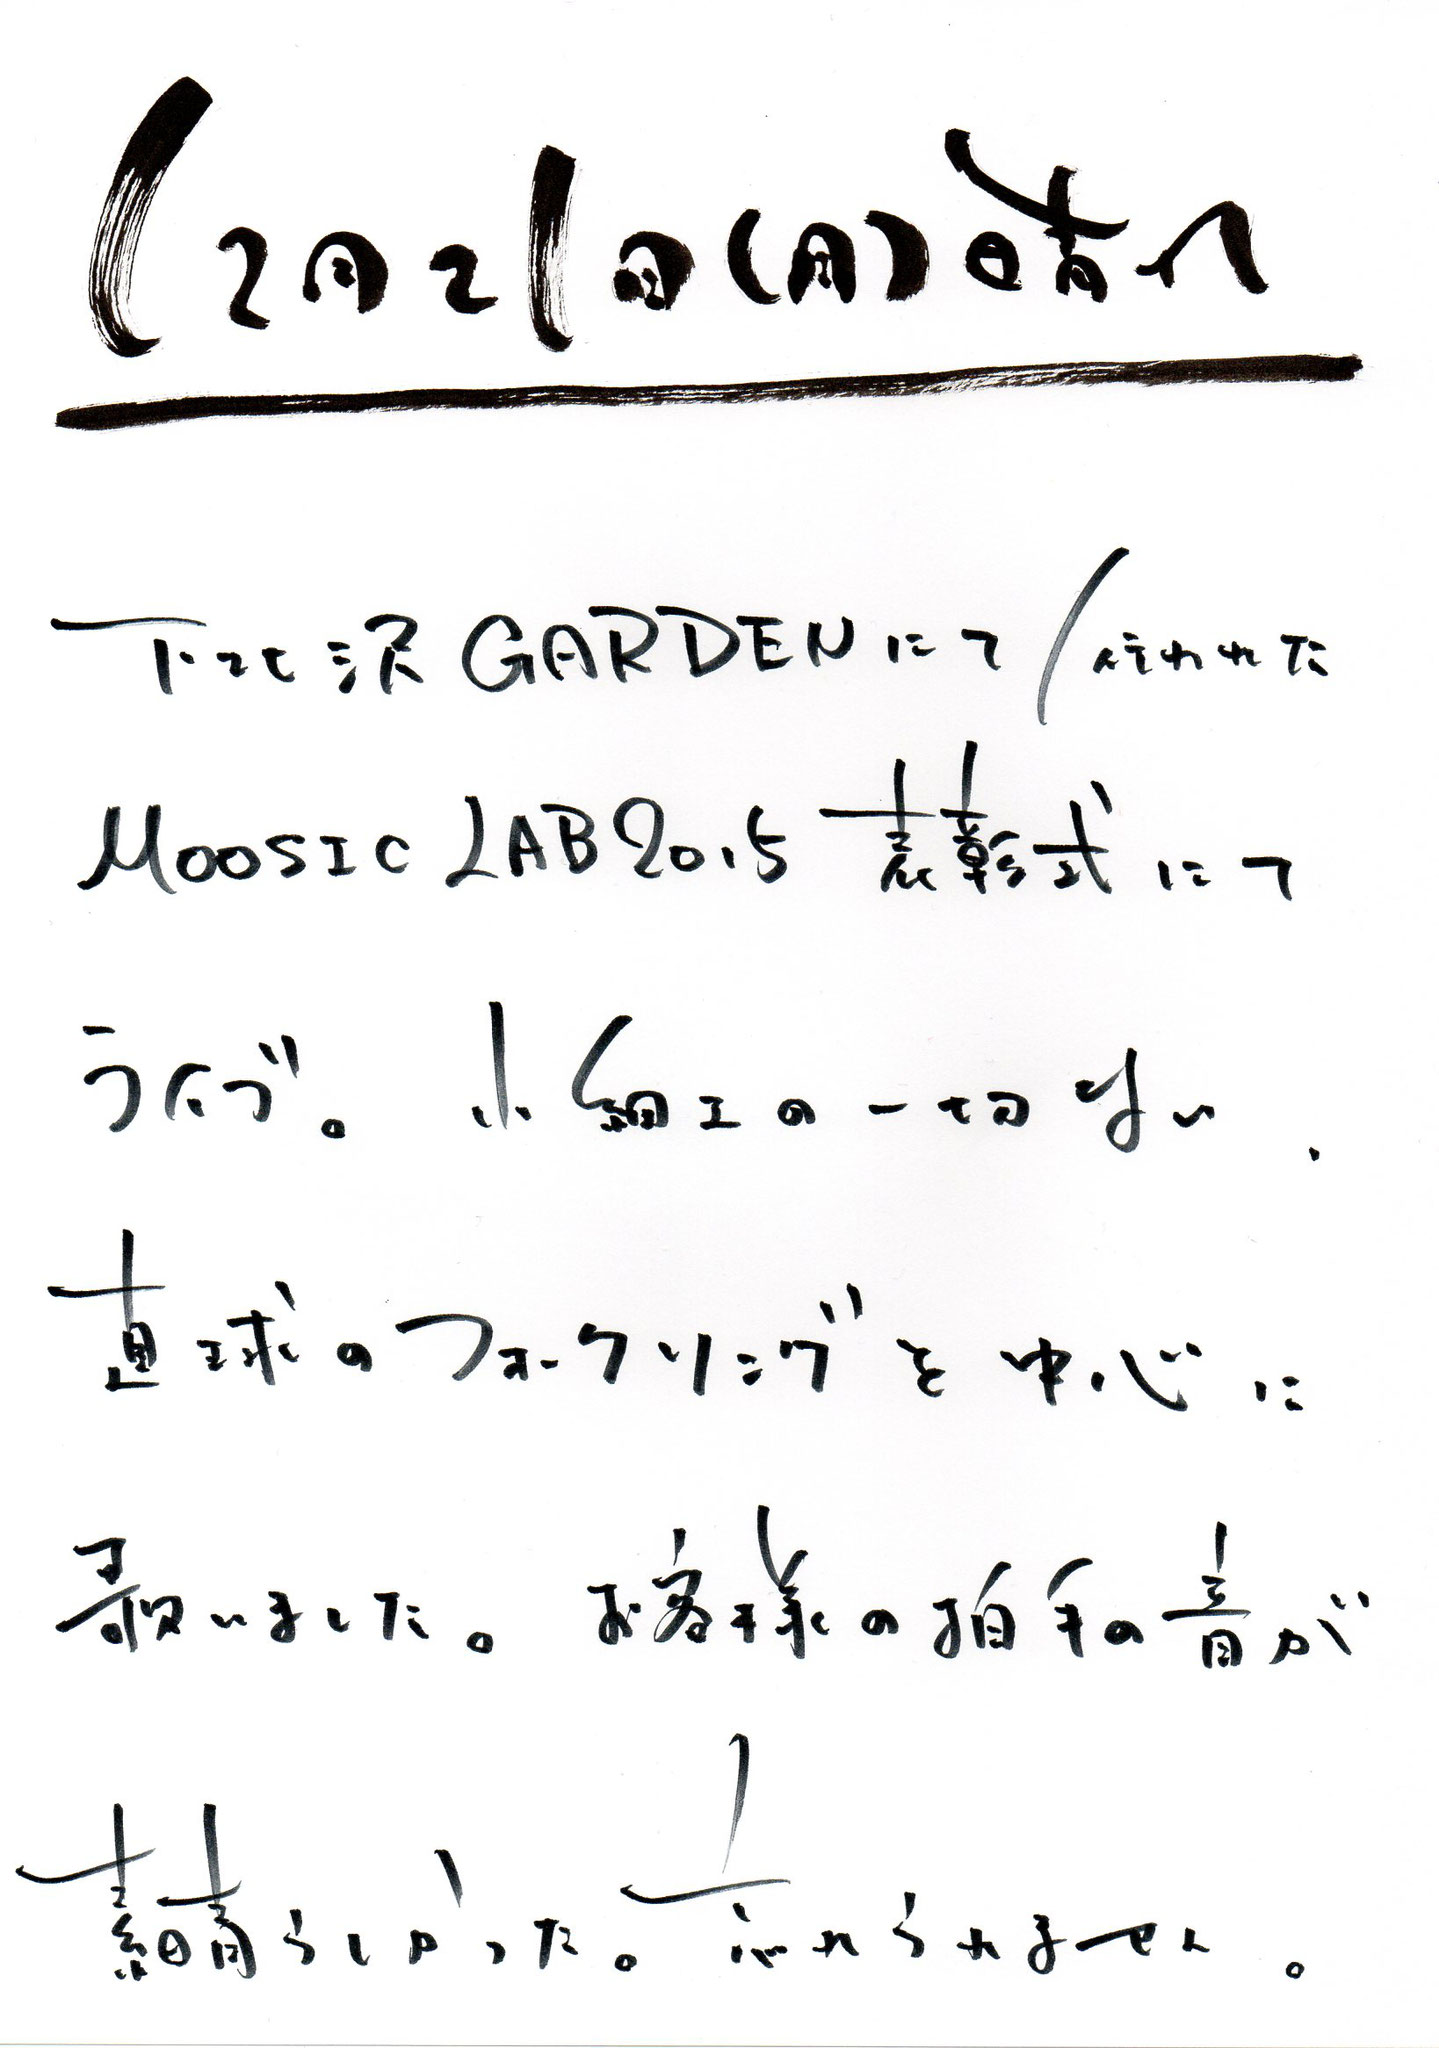 12月21日(月)晴れ
下北沢GARDENにて行われた
MOOSIC LAB 2015 表彰式にて
ライブ。小細工の一切ない、
直球のフォークソングを中心に
歌いました。お客様の拍手の音が
素晴らしかった。忘れられません。